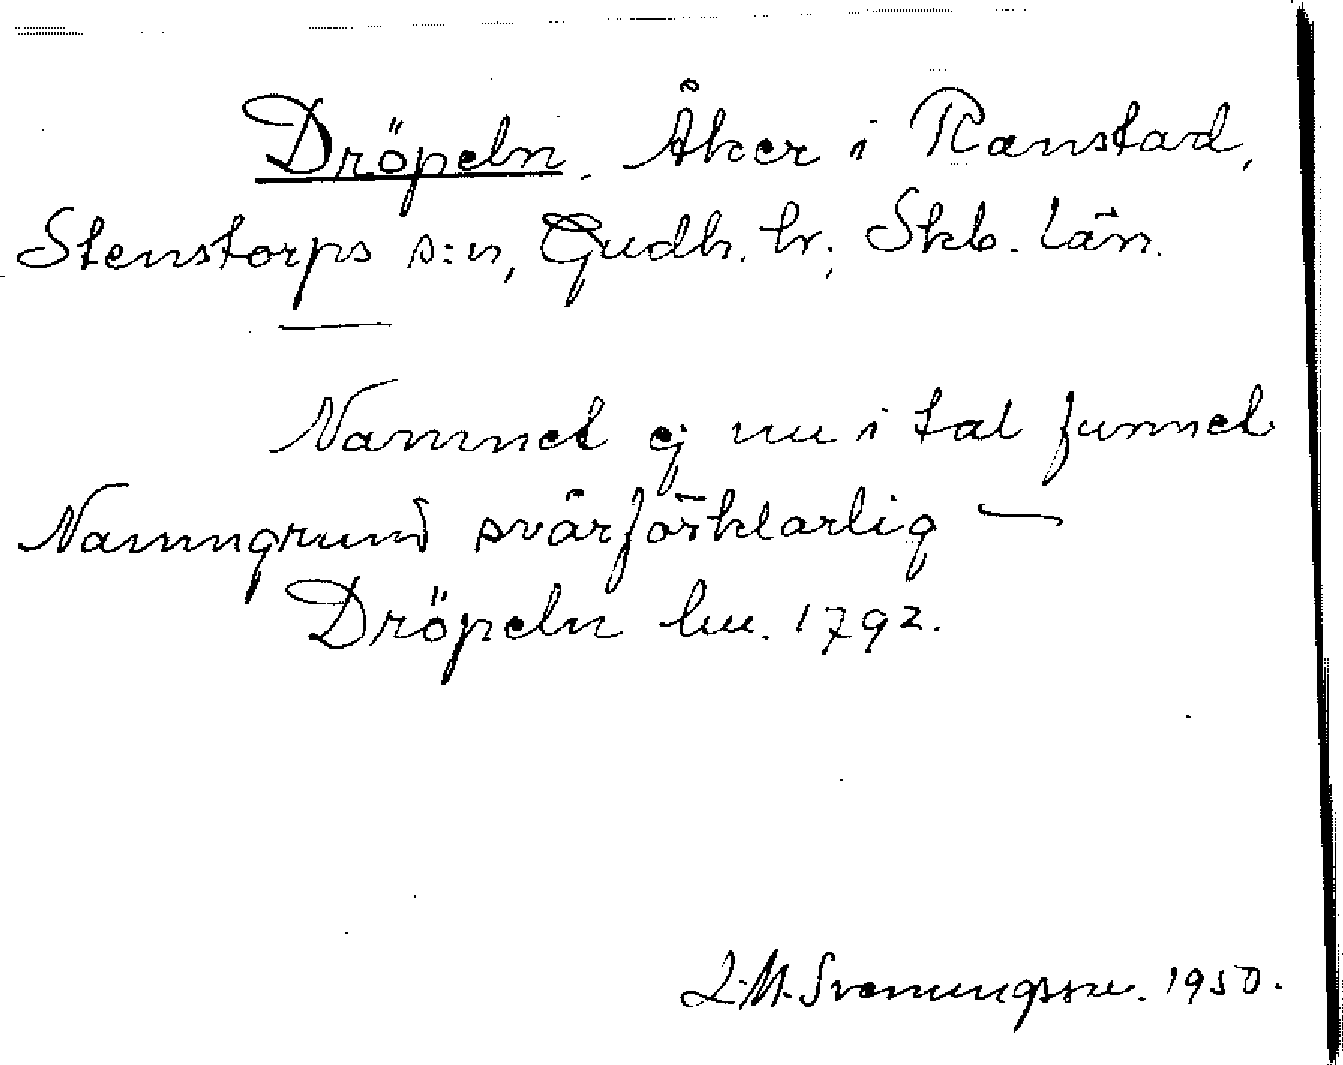 Dröpeln. Åker i Ranstad,
Stenstorps s:n, Gudh. hr; Skb. län.
Namnet ej nu i tal funnet
Namngrund svårförklarlig —
Dröpeln hu. 1792.
L.M. Svenungsson. 1950.